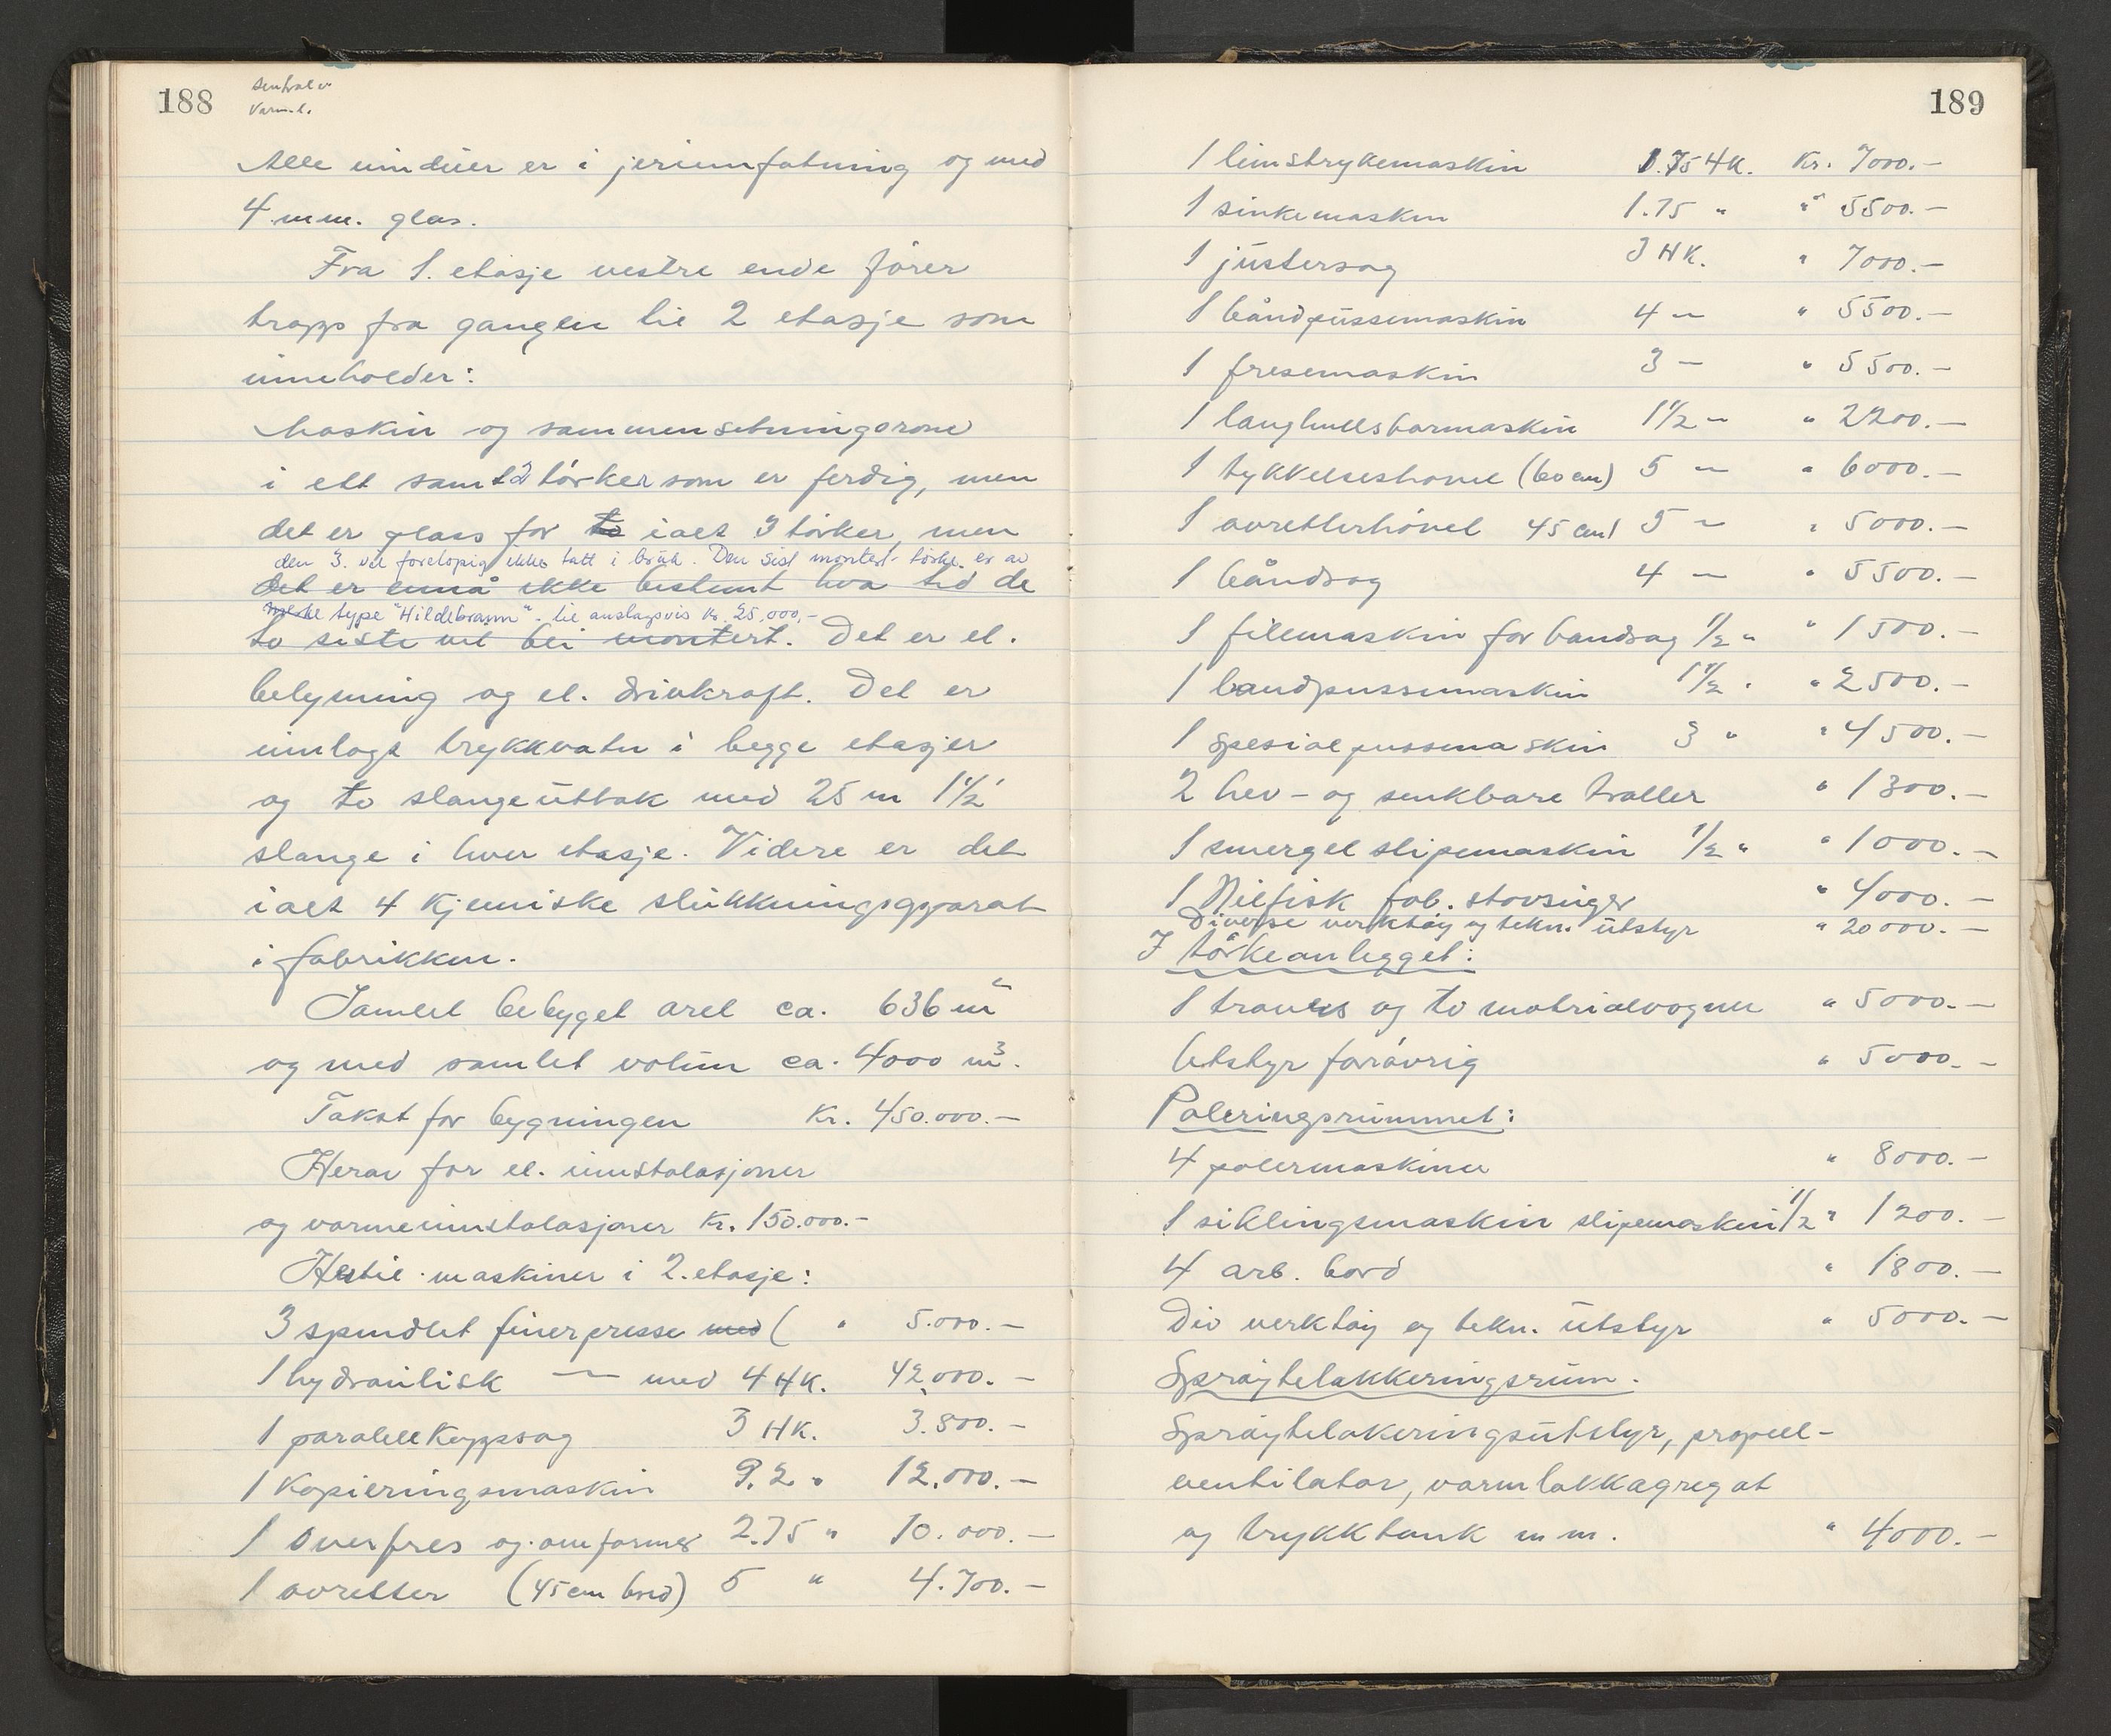 188
Sentralv
Varm.l.
Alle vinduer er i jernumfatning og med
4 mm. glas.
Fra 1. etasje vestre ende fører
trapp fra gangen til 2 etasje som
inneholder:
Maskin og sammensetningsrom
i ett samt 2 tørker som er ferdig, men
det er plass for to ialt 3 tørker, men
den 3. vil foreløpig ikke tatt i bruk. Den sist montert tørke er av
det er ennå ikke bestemt hva tid de
merke type "Hildebrann". til anslagsvis kr. 25,000,-
to siste vil bli montert. Det er el.
belysning og el. drivkraft. Det er
innlagt trykkvatn i begge etasjer
og to slangeuttak med 25 m 1 1/2"
slange i hver etasje. Videre er det
ialt 4 kjemiske slukkningsapparat
i fabrikken.
Samlet bebyget arel ca. 636 m²
og med samlet volum ca. 4000 m³.
Takst for bygningen Kr. 450.000.-
Herav for el. innstalasjoner
og varmeinnstalasjoner Kr. 150.000.-
Hertil maskiner i 2. etasje:
3 spindlet finerpresse med ( " 5.000.-
1 hydraulisk — med 4 HK. 42,000.-
1 paralellkappsag 3 HK. 3.800.-
1 Kopieringsmaskin 9.2 " 12.000.-
1 overfres og omformer 2.75 " 10.000.-
1 avretter (45 cm bred) 5 " 4.700.-
189
1 limstrykemaskin 1.75 HK. Kr. 7000.-
1 sinkemaskin 1.75 " " 5500.-
1 justersag 3 HK. " 7000.-
1 båndpussemaskin 4 — " 5500.-
1 fresemaskin 3 — " 5500.-
1 langhullsbormaskin 1 1/2 — " 2200.-
1 tykkelseshøvel (60 cm) 5 — " 6000.-
1 avretterhøvel 45 cm) 5 — " 5000.-
1 båndsag 4 — " 5500.-
1 filemaskin for bandsag 1/2 " " 1500.-
1 bandpussemaskin 1 1/2 " " 2500.-
1 spesialpussmaskin 3 " " 4500.-
2 hev- og senkbare traller " 1300.-
1 smergel slipemaskin 1/2 " " 1000.-
1 Nilfisk fab. støvsuger " 4000.-
Diverse verktøy og tekn. utstyr " 20000.-
I tørkeanlegget:
1 travers og to matrialvogner " 5000.-
Utstyr forøvrig " 5000.-
Poleringsrummet:
4 polermaskiner " 8000.-
1 siklingsmaskin slipemaskin 1/2 " 1200.-
4 arb. bord " 1800.-
Div verktøy og tekn. utstyr " 5000.-
Sprøytelakkeringsrum.
Sprøytelakeringsutstyr, propell-
ventilator, varmlakkagregat
og trykktank m m. " 4000.-